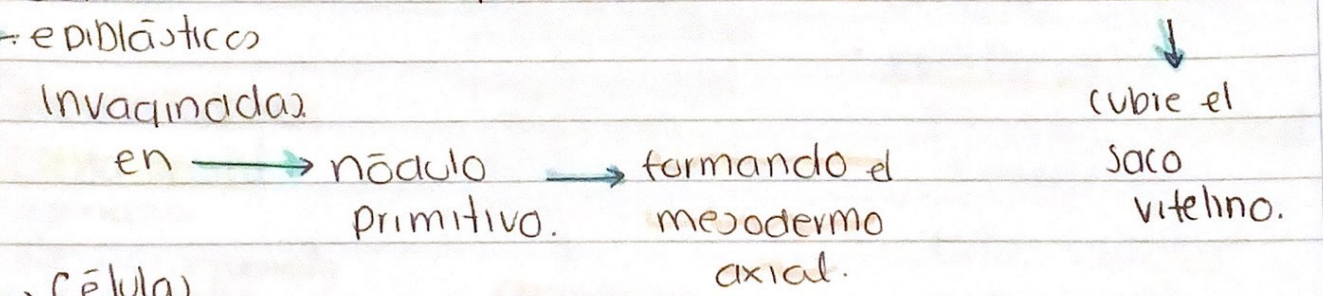 - epiblásticas
Invaginadas
en → nódulo
primitivo.
→ formando el
mesodermo
axial.
↓
cubre el
saco
vitelino.
. Células